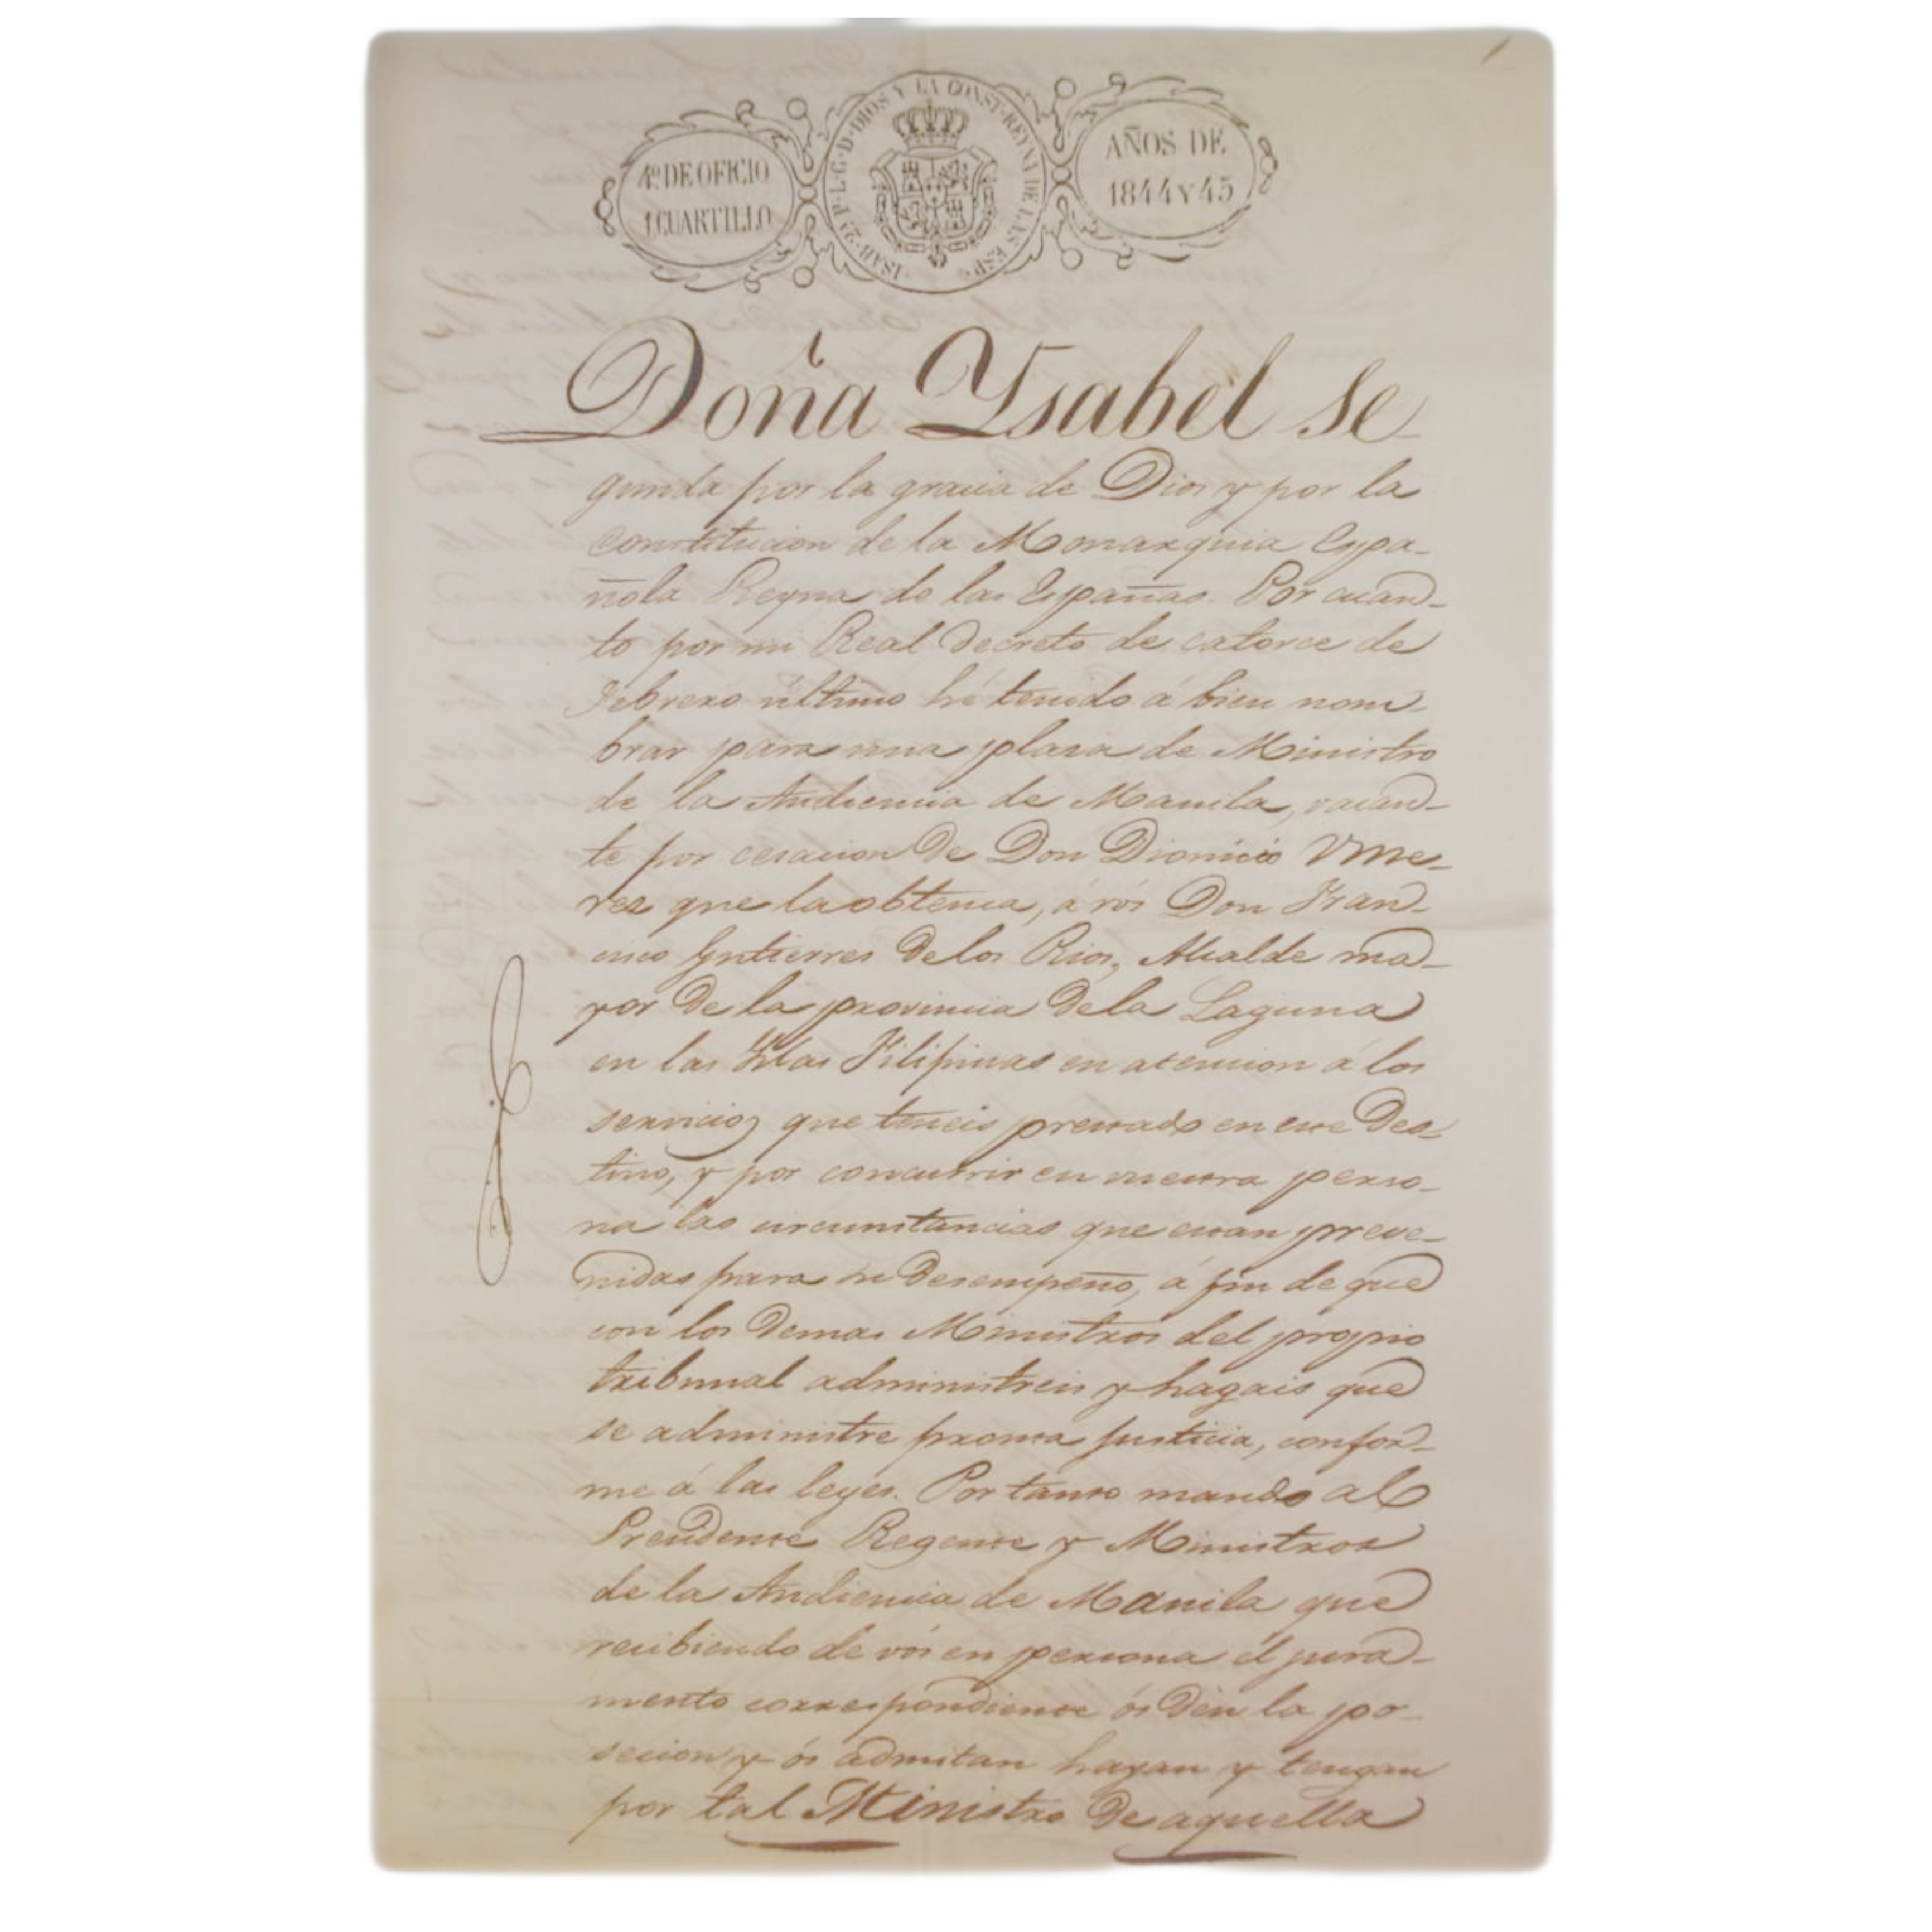 4º DE OFICIO
1 CUARTILLO
ISAB. 2ª P. L. G. D. DIOS Y LA CONST. REYNA DE LAS ESPˢ
AÑOS DE
1844 Y 45
Doña Ysabel se-
gunda por la gracia de Dios y por la
constitucion de la Monarquia Espa-
ñola Reyna de las Españas. Por cuan-
to por mi Real decreto de catorce de
Febrero último hé tenido á bien nom-
brar para una plaza de Ministro
de la Audiencia de Manila, vacan-
te por cesacion de Don Dionicio
rez que la obtenia, á vós Don Fran-
cisco Gutierres de los Rios, Alcalde ma-
yor de la provincia de la Laguna
en las Yslas Filipinas en atencion á los
servicios que teneis prestado en ese Des-
tino, y por concurrir en vuestra perso-
na las circunstancias que estan preve-
nidas para su desempeño, á fin de que
con los demas Ministros del propio
tribunal administreis y hagais que
se administre pronta justicia, confor-
me á las leyes. Por tanto mando al
Presidente Regente y Ministros
de la Audiencia de Manila que
recibiendo de vós en persona él jura-
mento correspondiente ós dén la po-
secion y ós admitan hayan y tengan
por tal Ministro de aquella